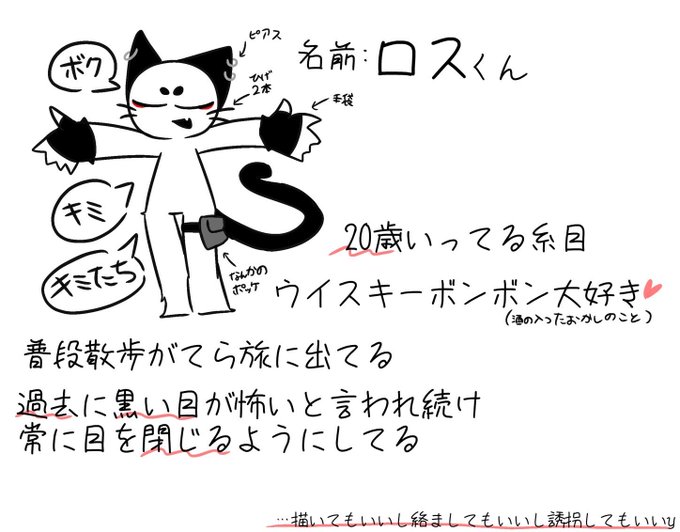 ボク
ピアス
名前:ロスくん
ひげ
2本
手袋
キミ
キミたち
なんかの
ポッケ
20歳いってる糸目
ウイスキーボンボン大好き
(酒の入ったおかしのこと)
普段散歩がてら旅に出てる
過去に黒い目が怖いと言われ続け
常に目を閉じるようにしてる
…描いてもいいし絡ましてもいいし誘拐してもいいy